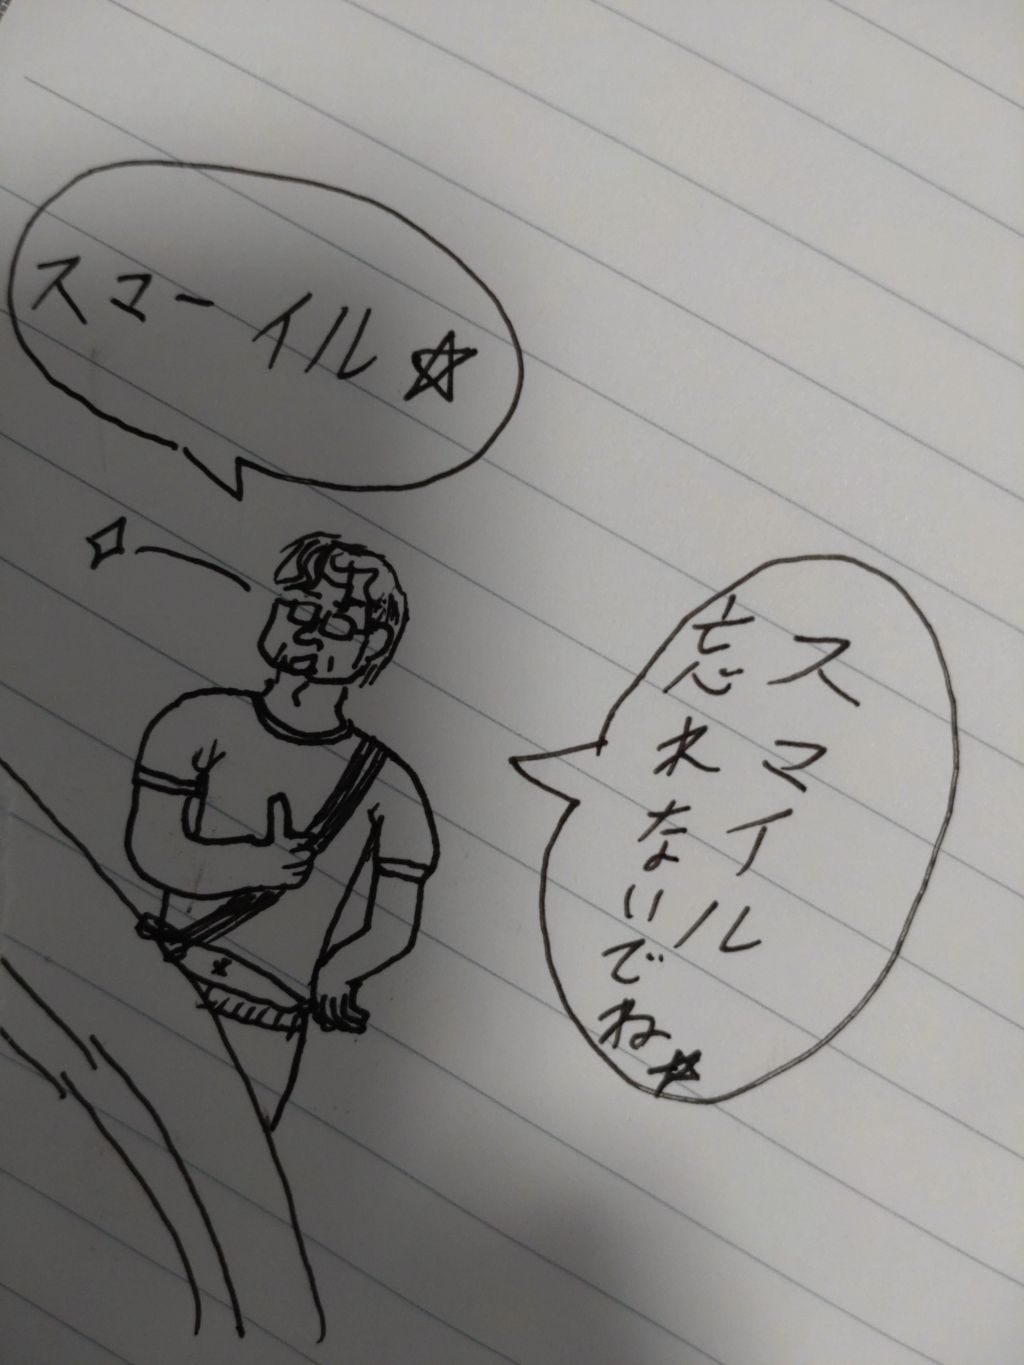 スマーイル☆
スマイル
忘れないでね☆